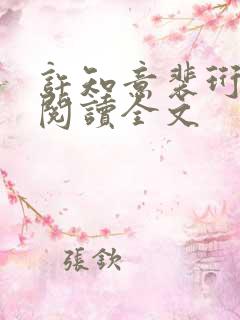 許知意裴珩
閱讀全文
張欽